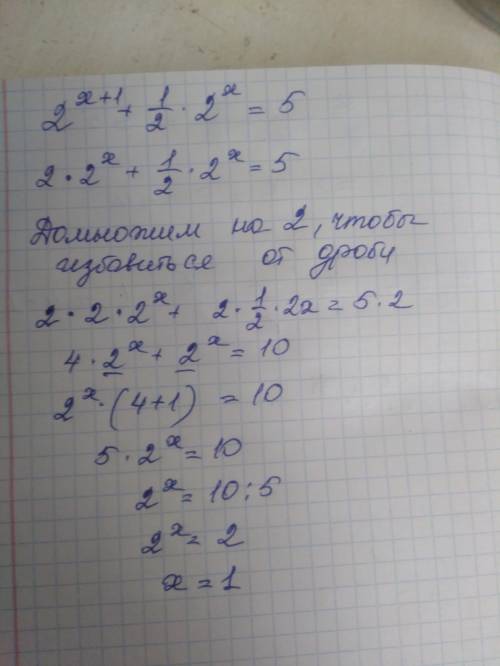 2^{x+1} + \frac{1}{2} \cdot 2^x = 5
2 \cdot 2^x + \frac{1}{2} \cdot 2^x = 5
Домножим на 2, чтобы
избавиться от дроби
2 \cdot 2 \cdot 2^x + 2 \cdot \frac{1}{2} \cdot 2x = 5 \cdot 2
4 \cdot 2^x + 2^x = 10
2^x \cdot (4+1) = 10
5 \cdot 2^x = 10
2^x = 10 : 5
2^x = 2
x = 1